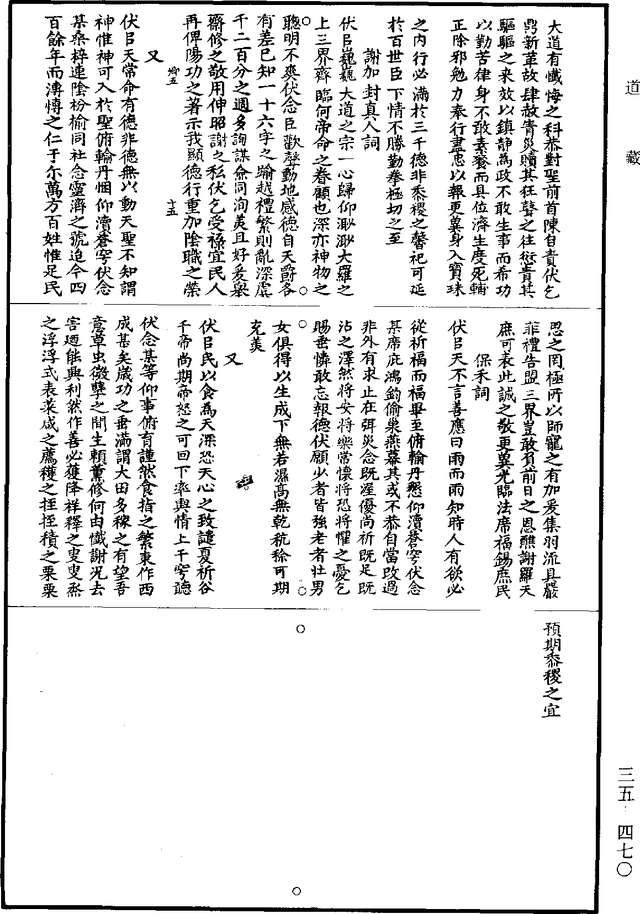 道藏
大道有懺悔之科恭對聖前首陳自責伏乞
鼎新革故肆赦眚災贖其狂瞽之往愆責其
驅驅之來效以鎮靜為政不敢生事而希功
以勤苦律身不敢素飡而具位濟生度死輔
正除邪勉力奉行盡忠以報更冀身入寶珠
之內行必滿於三千德非黍稷之馨祀可延
於百世臣下情不勝勤拳極切之至
謝加封真人詞
伏㠯巍巍大道之宗一心歸仰渺渺大羅之
上三界齊臨何帝命之眷顧也深亦神物之
聰明不爽伏念臣歡聲動地感德自天爵各
有差已知一十六字之踰越禮繁則亂深虞
千二百分之過多詢謀僉同洵美且好爰舉
齋修之敬用伸昭謝之私伏乞受祿宜民人
再俾陽功之著示我顯德行重加陰職之榮
又
卿五
十五
伏㠯天常命有德非德無以動天聖不知謂
神惟神可入於聖俯輸丹悃仰瀆蒼穹伏念
某桑梓連陰枌榆同社念靈濟之號迨今四
百餘年而溥博之仁于尔萬方百姓惟足民
恩之罔極所以師寵之有加爰集羽流具嚴
菲禮告盟三界豈敢負前日之恩醮謝羅天
庶可表此誠之敬更冀光臨法席福錫庶民
保禾詞
伏㠯天不言善應曰雨而雨知時人有欲必
從祈福而福畢至俯輸丹懇仰瀆蒼穹伏念
某席庇鴻鈞偷巢燕幕其或不恭自當改過
非外有求止在弭災念既渥優尚祈既足既
沾之澤然將安將樂常懷將恐將懼之憂乞
賜垂憐敢忘報德伏願少者皆強老者壯男
女俱得以生成下無若濕高無乾秔稌可期
充美
又
伏㠯民以食為天深恐天心之致譴夏祈谷
于帝尚期帝怒之可回下率輿情上干穹聽
伏念某等仰事俯育謹然食指之繁東作西
成甚矣歲功之垂滿謂大田多稼之有望吾
意草虫微孽之間生賴薰修何由懺謝况去
害迺能興利然作善必獲降祥釋之叟叟烝
之浮浮式表菜咸之薦穫之挃挃積之栗栗
預期黍稷之宜
三五 四七〇